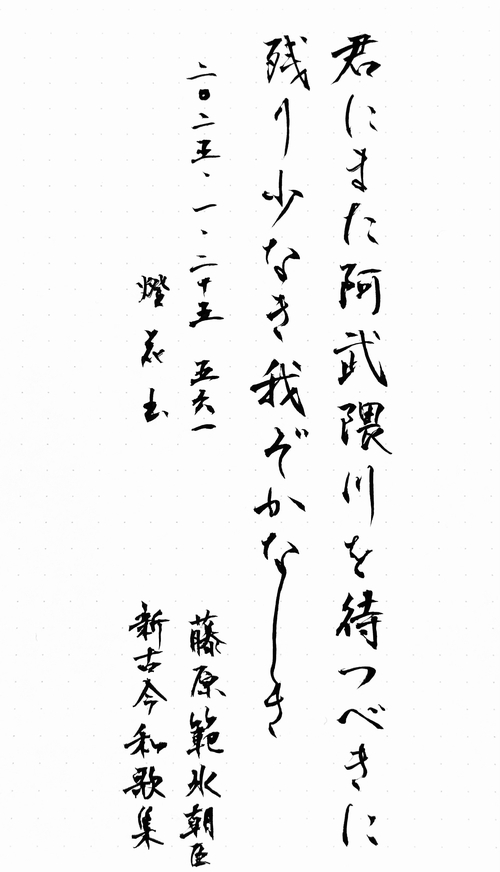 君にまた阿武隈川を待つべきに
残り少なき我ぞかなしき
二〇二五、一、二十五 五六一
燈花
藤原範永朝臣
新古今和歌集